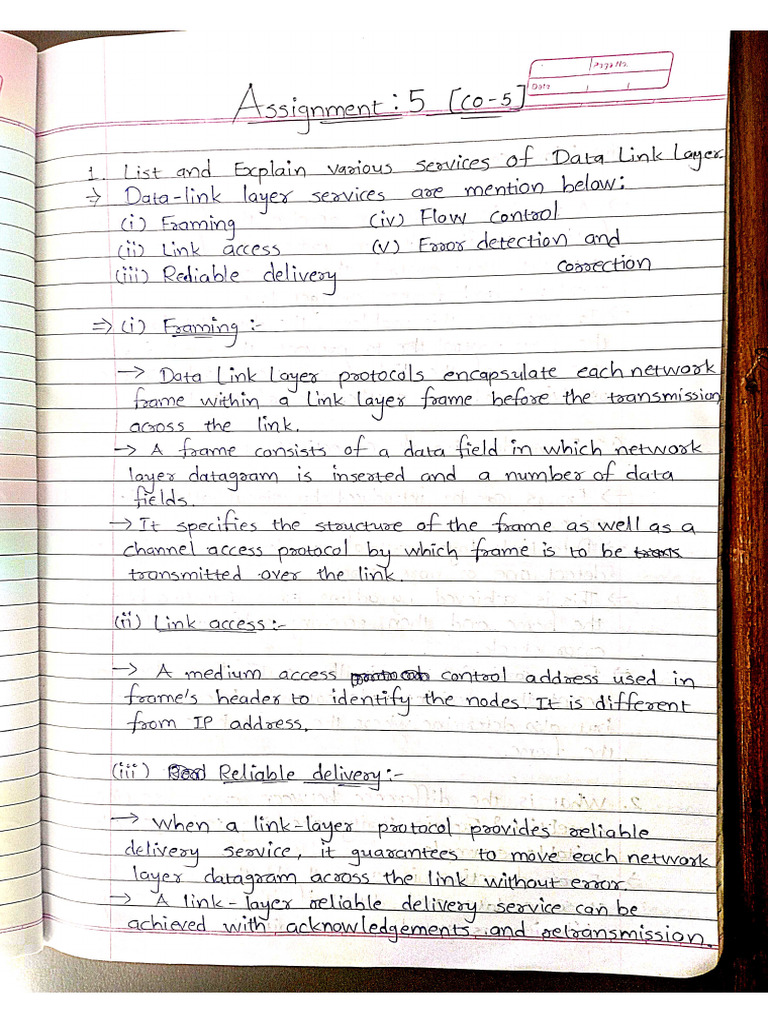 Page No.
Date / /
Assignment: 5 [CO-5]
1. List and Explain various services of Data Link Layer.
⇒ Data-link layer services are mention below:
(i) Framing (iv) Flow control
(ii) Link access (v) Error detection and
correction
(iii) Rediable delivery
⇒ (i) Framing :-
→ Data Link Layer protocols encapsulate each network
frame within a link layer frame before the transmission
across the link.
→ A frame consists of a data field in which network
layer datagram is inserted and a number of data
fields.
→ It specifies the structure of the frame as well as a
channel access protocol by which frame is to be trans
transmitted over the link.
(ii) Link access :-
→ A medium access protocol control address used in
frame's header to identify the nodes. It is different
from IP address.
(iii) Reliable delivery :-
→ When a link-layer protocol provides reliable
delivery service, it guarantees to move each network
layer datagram across the link without error.
→ A link-layer reliable delivery service can be
achieved with acknowledgements and retransmission.